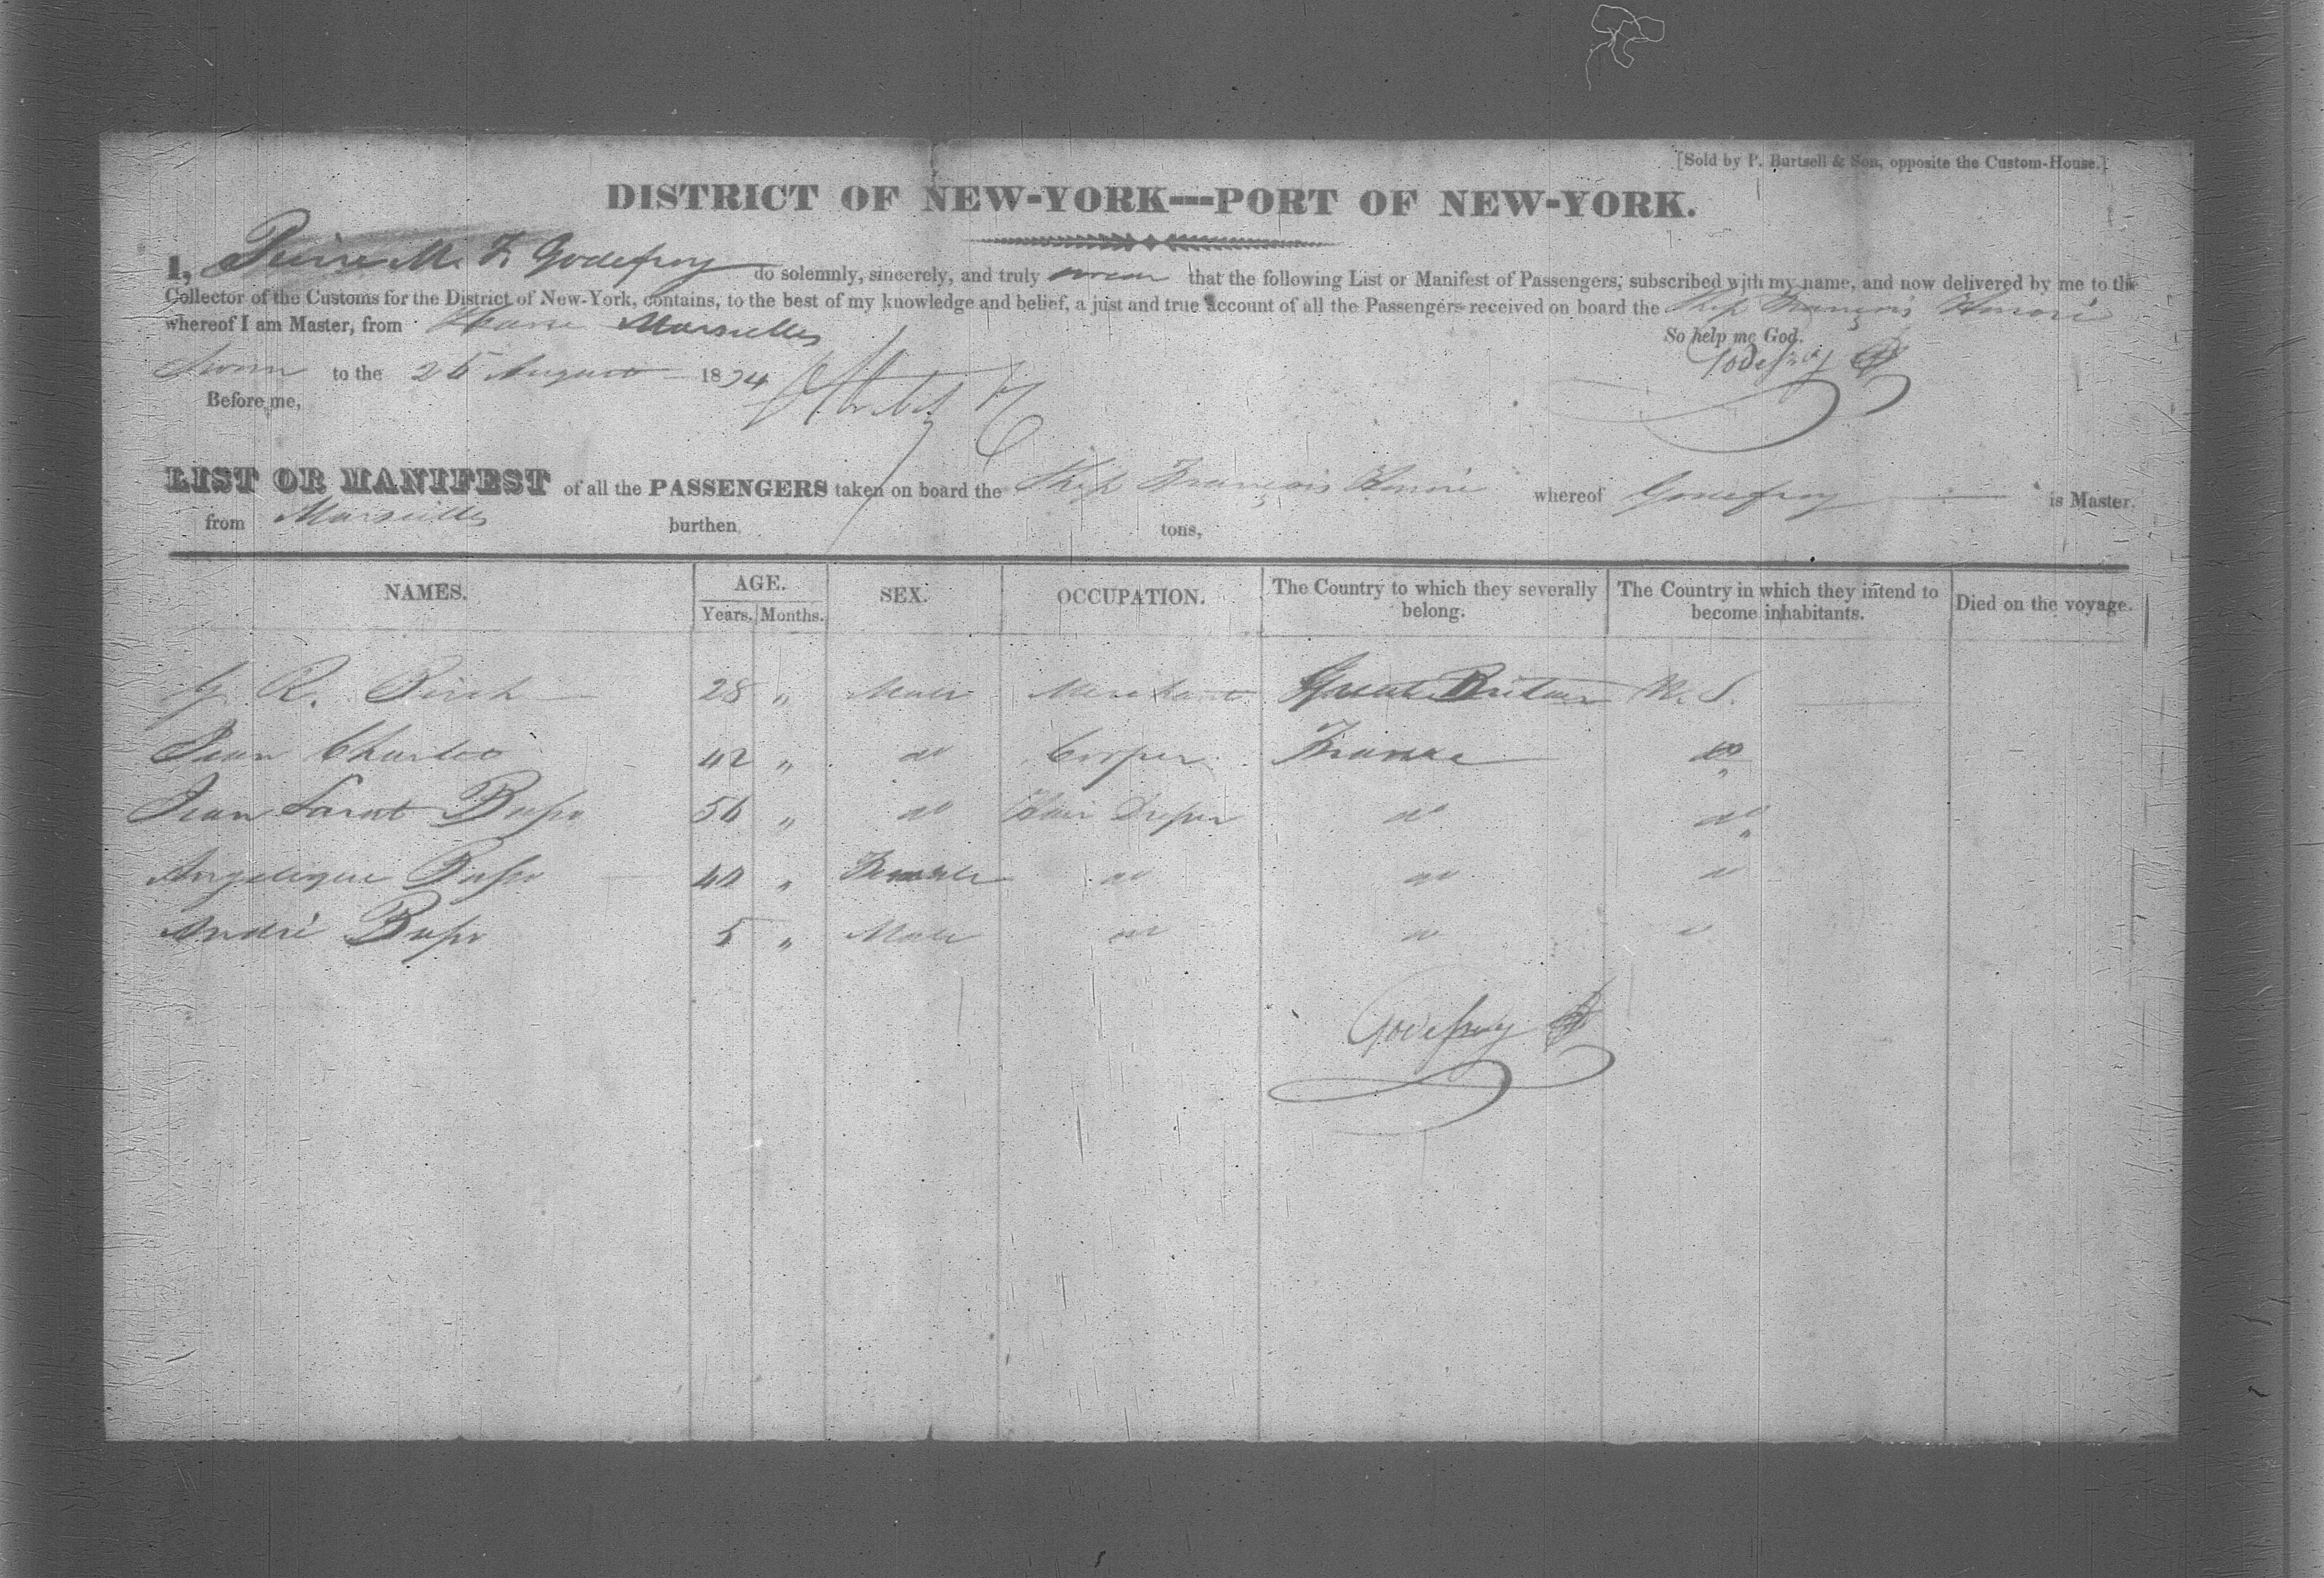 [Sold by P. Burtsell & Son, opposite the Custom-House.]
DISTRICT OF NEW-YORK---PORT OF NEW-YORK.
I, Pierre M. F. Godefroy do solemnly, sincerely, and truly swear that the following List or Manifest of Passengers, subscribed with my name, and now delivered by me to the
Collector of the Customs for the District of New-York, contains, to the best of my knowledge and belief, a just and true account of all the Passengers received on board the Ship François
whereof I am Master, from Marseilles
So help me God.
Godefroy
Sworn to the 25 August 1834
Before me,
LIST OR MANIFEST of all the PASSENGERS taken on board the Ship François whereof Godefroy is Master.
from Marseilles burthen, tons,
NAMES. AGE. SEX. OCCUPATION. The Country to which they severally belong. The Country in which they intend to become inhabitants. Died on the voyage.
Years. Months.
G. R. Birch 28 " Male Merchant Great Britain U. S.
Jean Charles 42 " do Cooper France do
Jean 50 " do do do
Angelique 40 " Female do do do
André 5 " Male do do do
Godefroy